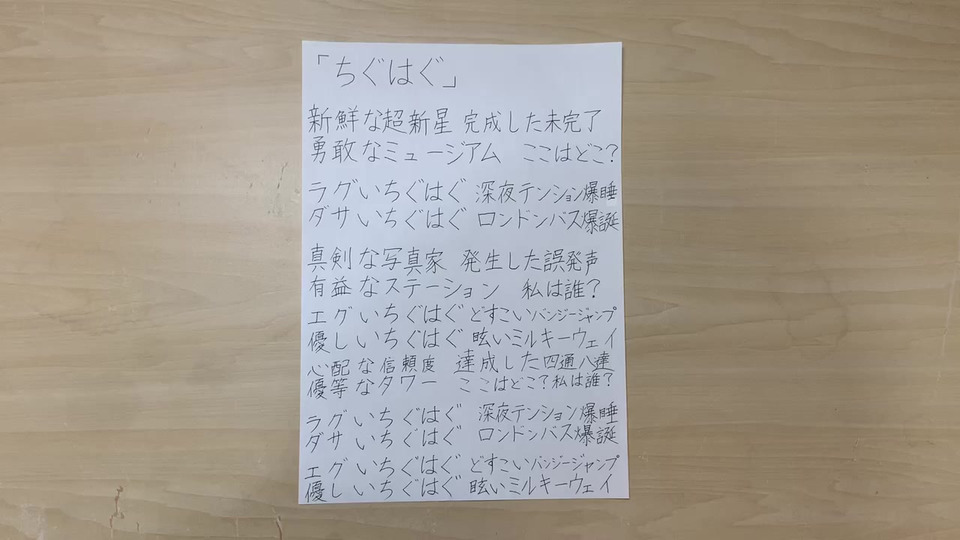 「ちぐはぐ」
新鮮な超新星 完成した未完了
勇敢なミュージアム ここはどこ?
ラグいちぐはぐ 深夜テンション爆睡
ダサいちぐはぐ ロンドンバス爆誕
真剣な写真家 発生した誤発声
有益なステーション 私は誰?
エグいちぐはぐ どすこいバンジージャンプ
優しいちぐはぐ 眩いミルキーウェイ
心配な信頼度 達成した四通八達
優等なタワー ここはどこ?私は誰?
ラグいちぐはぐ 深夜テンション爆睡
ダサいちぐはぐ ロンドンバス爆誕
エグいちぐはぐ どすこいバンジージャンプ
優しいちぐはぐ 眩いミルキーウェイ